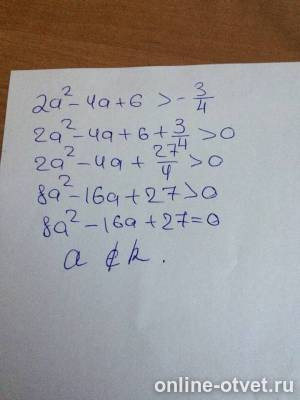 2a² - 4a + 6 > -3/4
2a² - 4a + 6 + 3/4 > 0
2a² - 4a + 27/4 > 0
8a² - 16a + 27 > 0
8a² - 16a + 27 = 0
a ∉ k.
online-otvet.ru